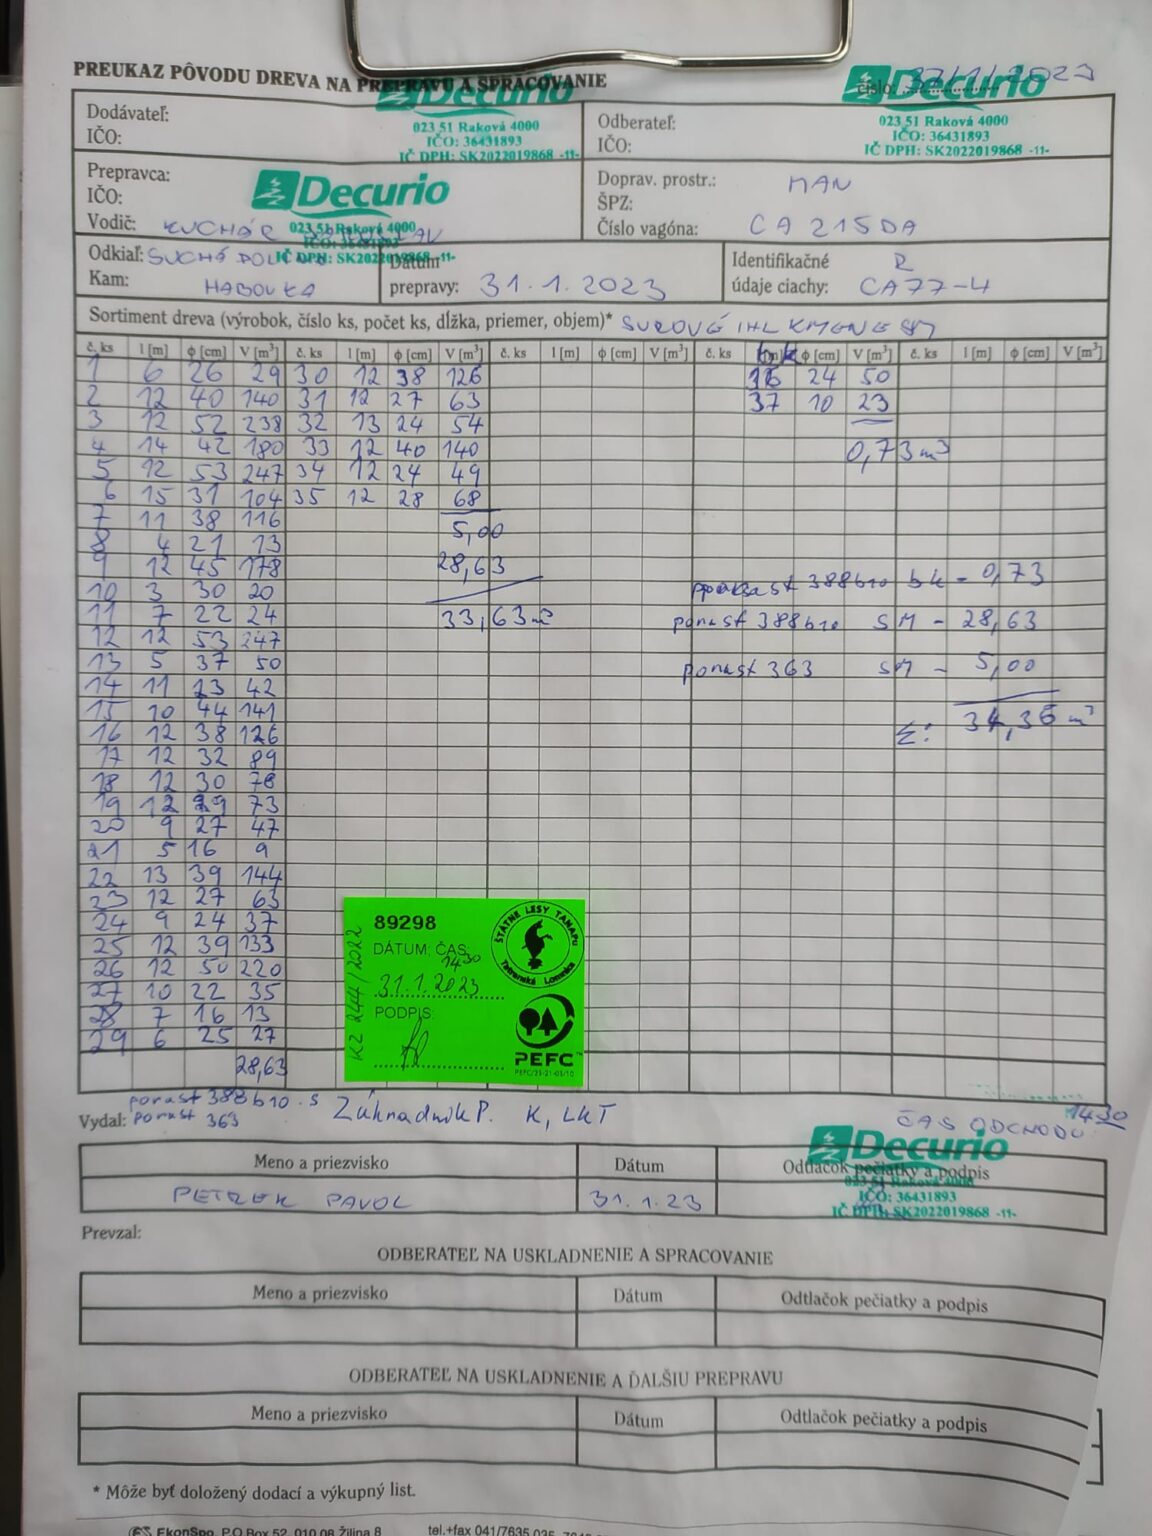 PREUKAZ PÔVODU DREVA NA PREPRAVU A SPRACOVANIE
číslo: 2023
Decurio
023 51 Raková 4000
IČO: 36431893
IČ DPH: SK2022019868 -11-
Decurio
023 51 Raková 4000
IČO: 36431893
IČ DPH: SK2022019868 -11-
Dodávateľ:
IČO:
Odberateľ:
IČO:
Prepravca:
IČO:
Vodič: KUCHÁR
Decurio
023 51 Raková 4000
IČO: 36431893
IČ DPH: SK2022019868 -11-
Doprav. prostr.: MAN
ŠPZ:
Číslo vagóna: CA 215DA
Odkiaľ: SUCHÁ
Kam: HABOVKA
Dátum
prepravy: 31.1.2023
Identifikačné R
údaje ciachy: CA77-4
Sortiment dreva (výrobok, číslo ks, počet ks, dĺžka, priemer, objem)* SUROVÉ IHL KMENE SM
č. ks l [m] φ [cm] V [m³] č. ks l [m] φ [cm] V [m³] č. ks l [m] φ [cm] V [m³] č. ks φ [cm] V [m³] č. ks l [m] φ [cm] V [m³]
1 6 26 29 30 12 38 126 24 50
2 12 40 140 31 12 27 63 37 10 23
3 12 52 238 32 13 24 54
4 14 42 180 33 12 40 140 0,73 m³
5 12 53 247 34 12 24 49
6 15 31 104 35 12 28 68
7 11 38 116 5,00
8 4 21 13
9 12 45 178 28,63
10 3 30 20 388b10 bk - 0,73
11 7 22 24 33,63 m³ porast 388b10 SM - 28,63
12 12 53 247
13 5 37 50 porast 363 SM - 5,00
14 11 23 42
15 10 44 141 Σ: 34,36 m³
16 12 38 126
17 12 32 89
18 12 30 78
19 12 29 73
20 9 27 47
21 5 16 9
22 13 39 144
23 12 27 63
24 9 24 37
25 12 39 133
26 12 50 220
27 10 22 35
28 7 16 13
29 6 25 27
28,63
89298
DÁTUM: ČAS:
14 30
31.1.2023
PODPIS:
KZ 244/2022
ŠTÁTNE LESY TANAPu
Tatranská Lomnica
PEFC™
PEFC/23-21-03/10
porast 388b10 . s Záhradník P. K, LKT
Vydal: porast 363
14 30
ČAS ODCHODU
Decurio
023 51 Raková 4000
IČO: 36431893
IČ DPH: SK2022019868 -11-
Meno a priezvisko Dátum Odtlačok pečiatky a podpis
PETREK PAVOL 31.1.23
Prevzal:
ODBERATEĽ NA USKLADNENIE A SPRACOVANIE
Meno a priezvisko Dátum Odtlačok pečiatky a podpis
ODBERATEĽ NA USKLADNENIE A ĎALŠIU PREPRAVU
Meno a priezvisko Dátum Odtlačok pečiatky a podpis
* Môže byť doložený dodací a výkupný list.
EkonSpo, P.O.Box 52, 010 08 Žilina 8 tel.+fax 041/7635 035